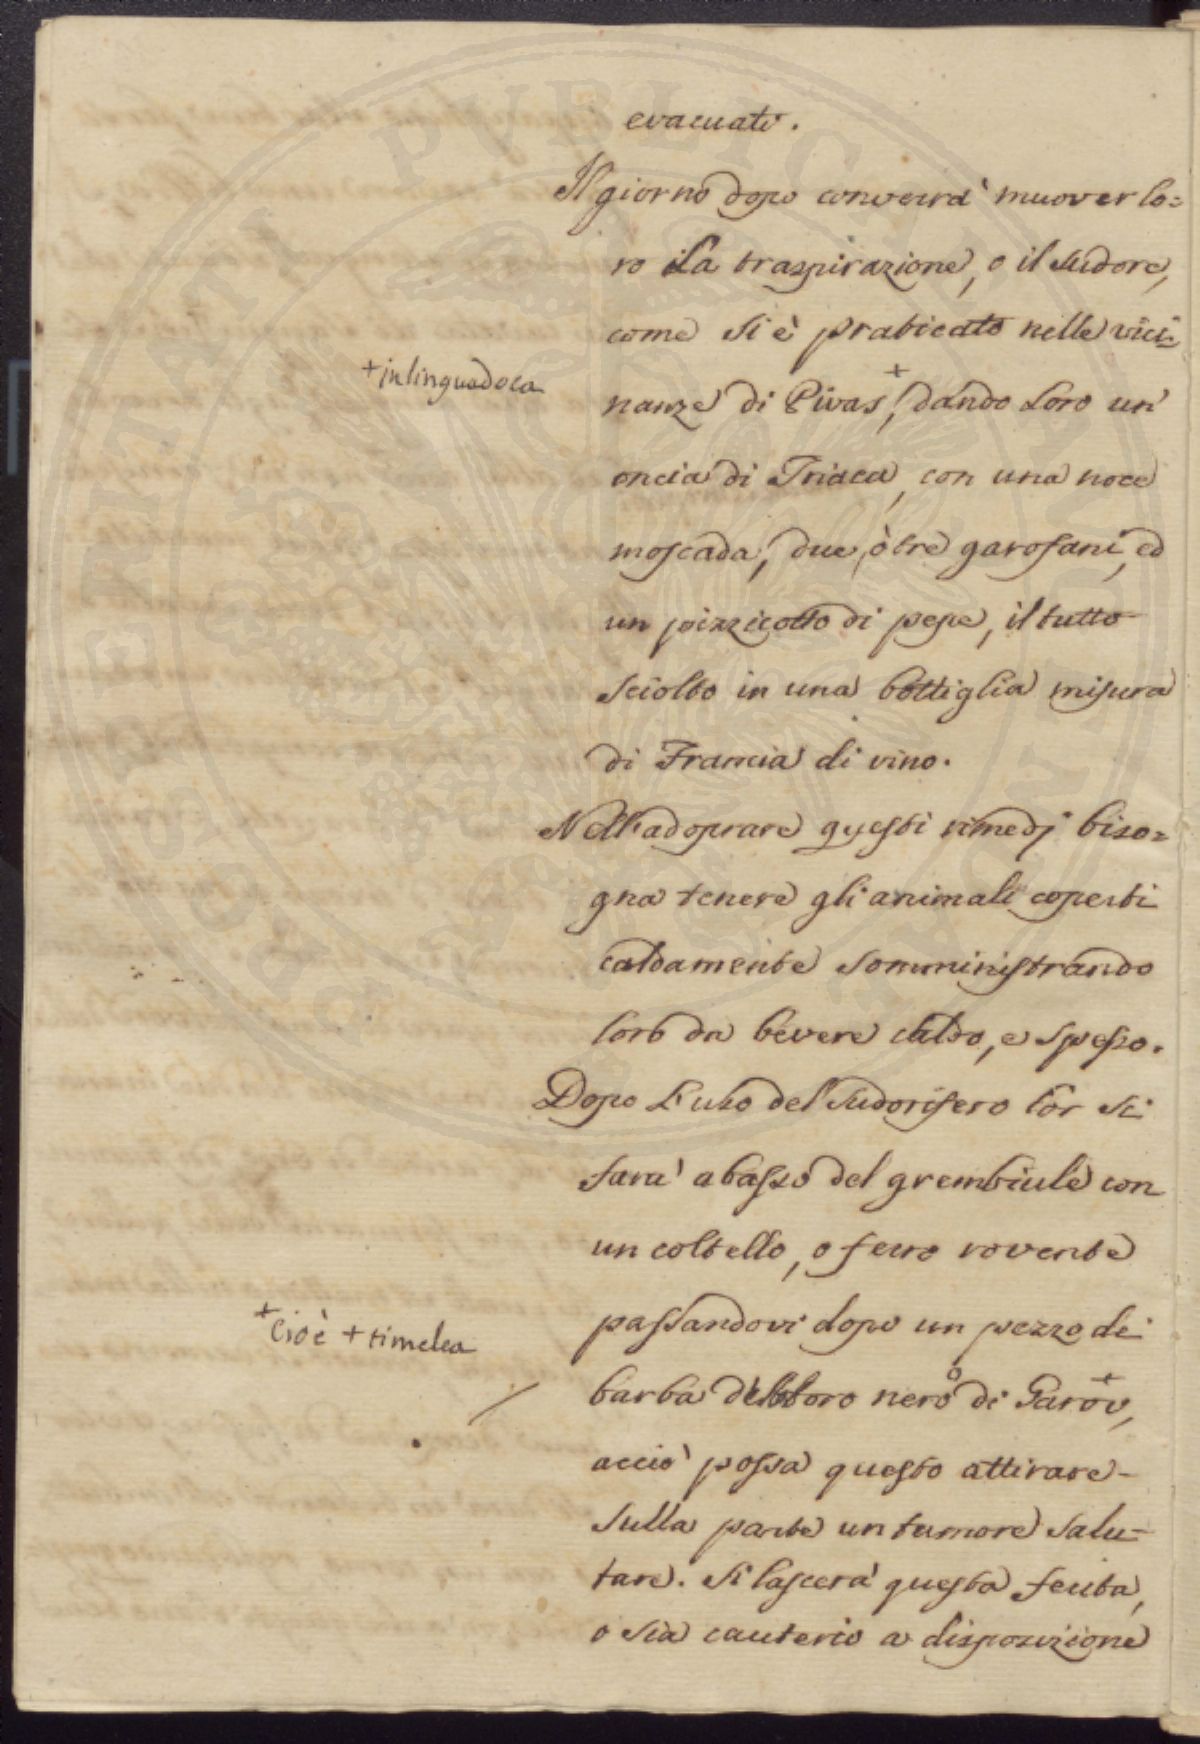 evacuati.
Il giorno dopo converrà muover lo=
ro la traspirazione, o il sudore,
come si è praticato nelle vici=
+ in linguadoca
nanze di Vivas,+ dando loro un'
oncia di Triaca, con una noce
moscada, due, ò tre garofani, ed
un pizzicotto di pepe, il tutto
sciolto in una bottiglia misura
di Francia di vino.
Nell'adoprare questi rimedj biso=
gna tenere gli animali coperti
caldamente somministrando
loro da bevere caldo, e spesso.
Dopo l'uso del sudorifero lor si
farà abasso del grembiule con
un coltello, o ferro rovente
passandovi dopo un pezzo di
+ Cioè + timelea
barba d'elloboro nero o di Garou,+
acciò possa questo attirare
sulla parte un tumore salu=
tare. Si lascerà questa ferita,
o sia cauterio a disposizione